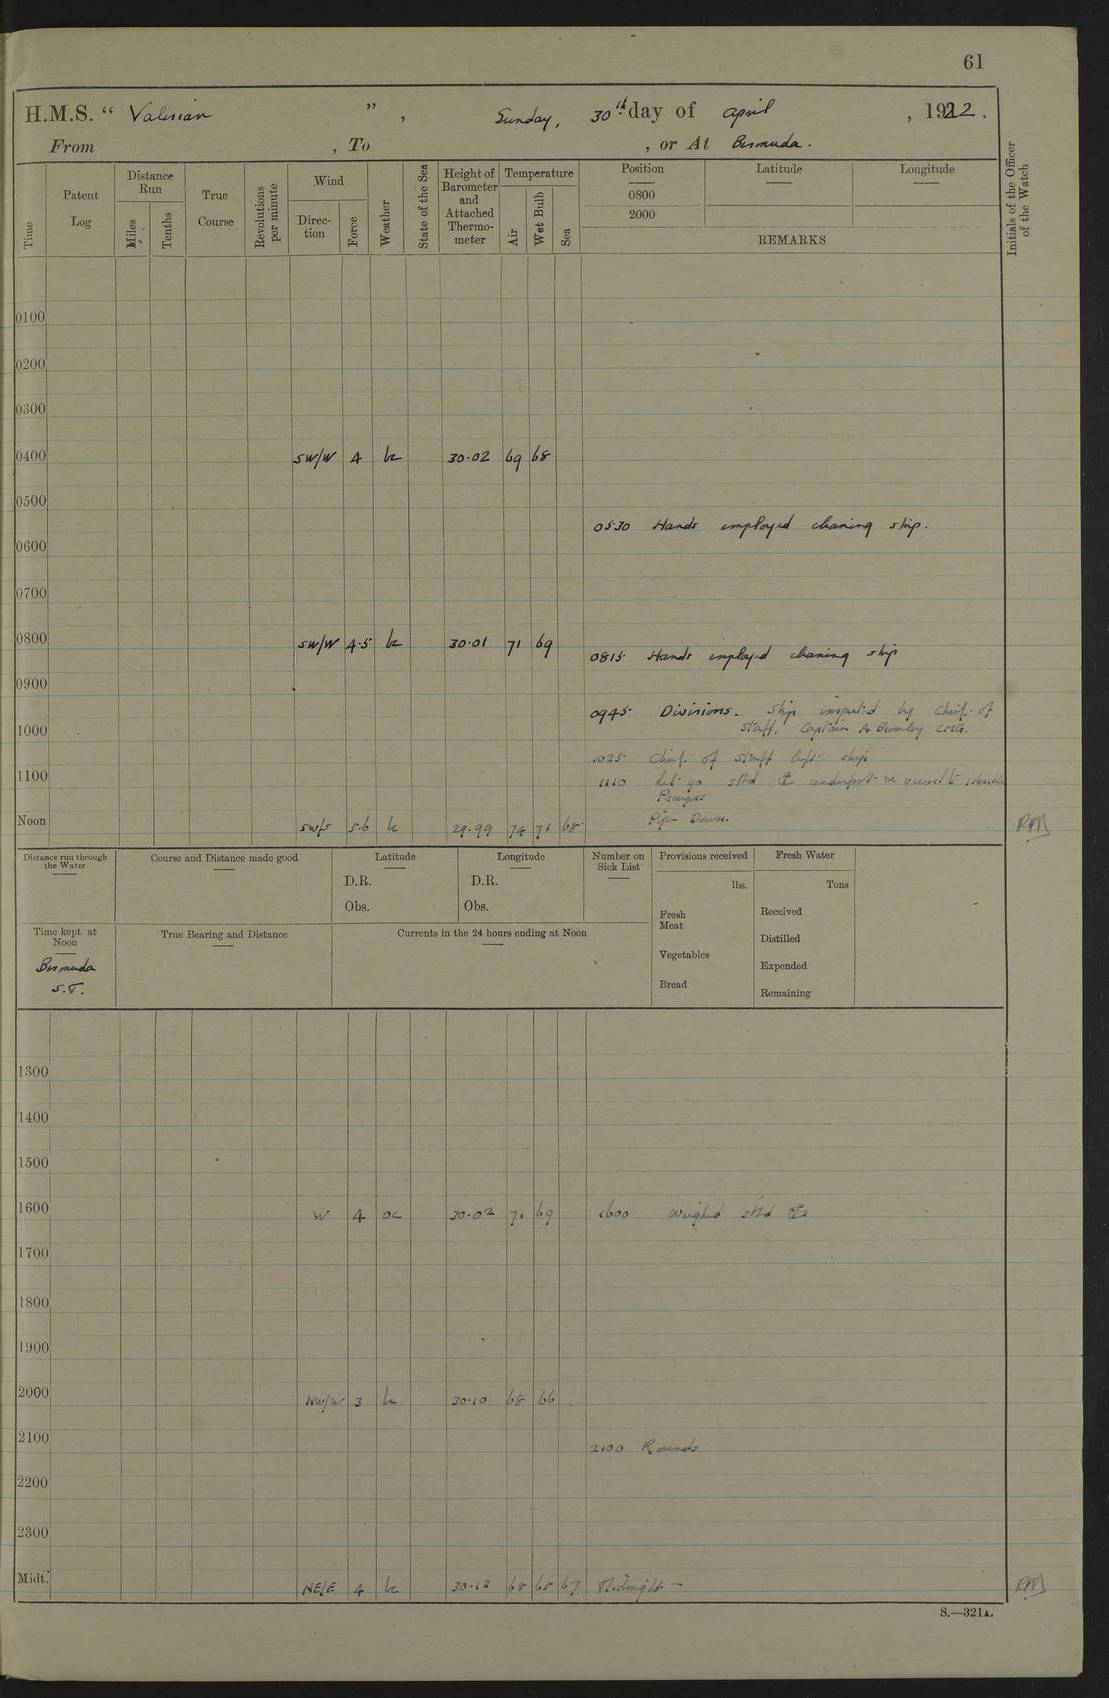 61
H.M.S. “ Valerian ”, Sunday, 30th day of April , 1922.
From , To , or At Bermuda.
Time
Patent Log
Distance Run
Miles
Tenths
True Course
Revolutions per minute
Wind
Direc-tion
Force
Weather
State of the Sea
Height of Barometer and Attached Thermo-meter
Temperature
Air
Wet Bulb
Sea
Position
0800
2000
Latitude
Longitude
REMARKS
Initials of the Officer of the Watch
0100
0200
0300
0400 SW/W 4 bc 30·02 69 68
0500
0530 Hands employed cleaning ship.
0600
0700
0800 SW/W 4-5 bc 30·01 71 69
0815 Hands employed cleaning ship
0900
0945 Divisions. Ship inspected by Chief of
Staff. Captain A Bromley
1000
1025 Chief of Staff left ship
1100
1110 Let go stbd
Pipe Down.
Noon SW/S 5-6 bc 29·99 74 71 68
Distance run through the Water
Course and Distance made good
Latitude
D.R.
Obs.
Longitude
D.R.
Obs.
Number on Sick List
Provisions received
lbs.
Fresh Meat
Vegetables
Bread
Fresh Water
Tons
Received
Distilled
Expended
Remaining
Time kept at Noon
Bermuda
S.T.
True Bearing and Distance
Currents in the 24 hours ending at Noon
1300
1400
1500
1600 W 4 oc 30·02 71 69 1600 Weighed stbd
1700
1800
1900
2000 NW/W 3 bc 30·10 68 66
2100
2100 Rounds
2200
2300
Midt. NE/E 4 bc 30·12 68 68 67 Midnight —
S.—321A.